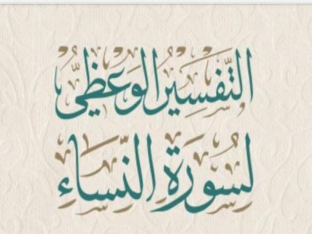 التَّفْسِيرُ الوَعْظِيُّ
لِسُورَةِ النِّسَاءِ